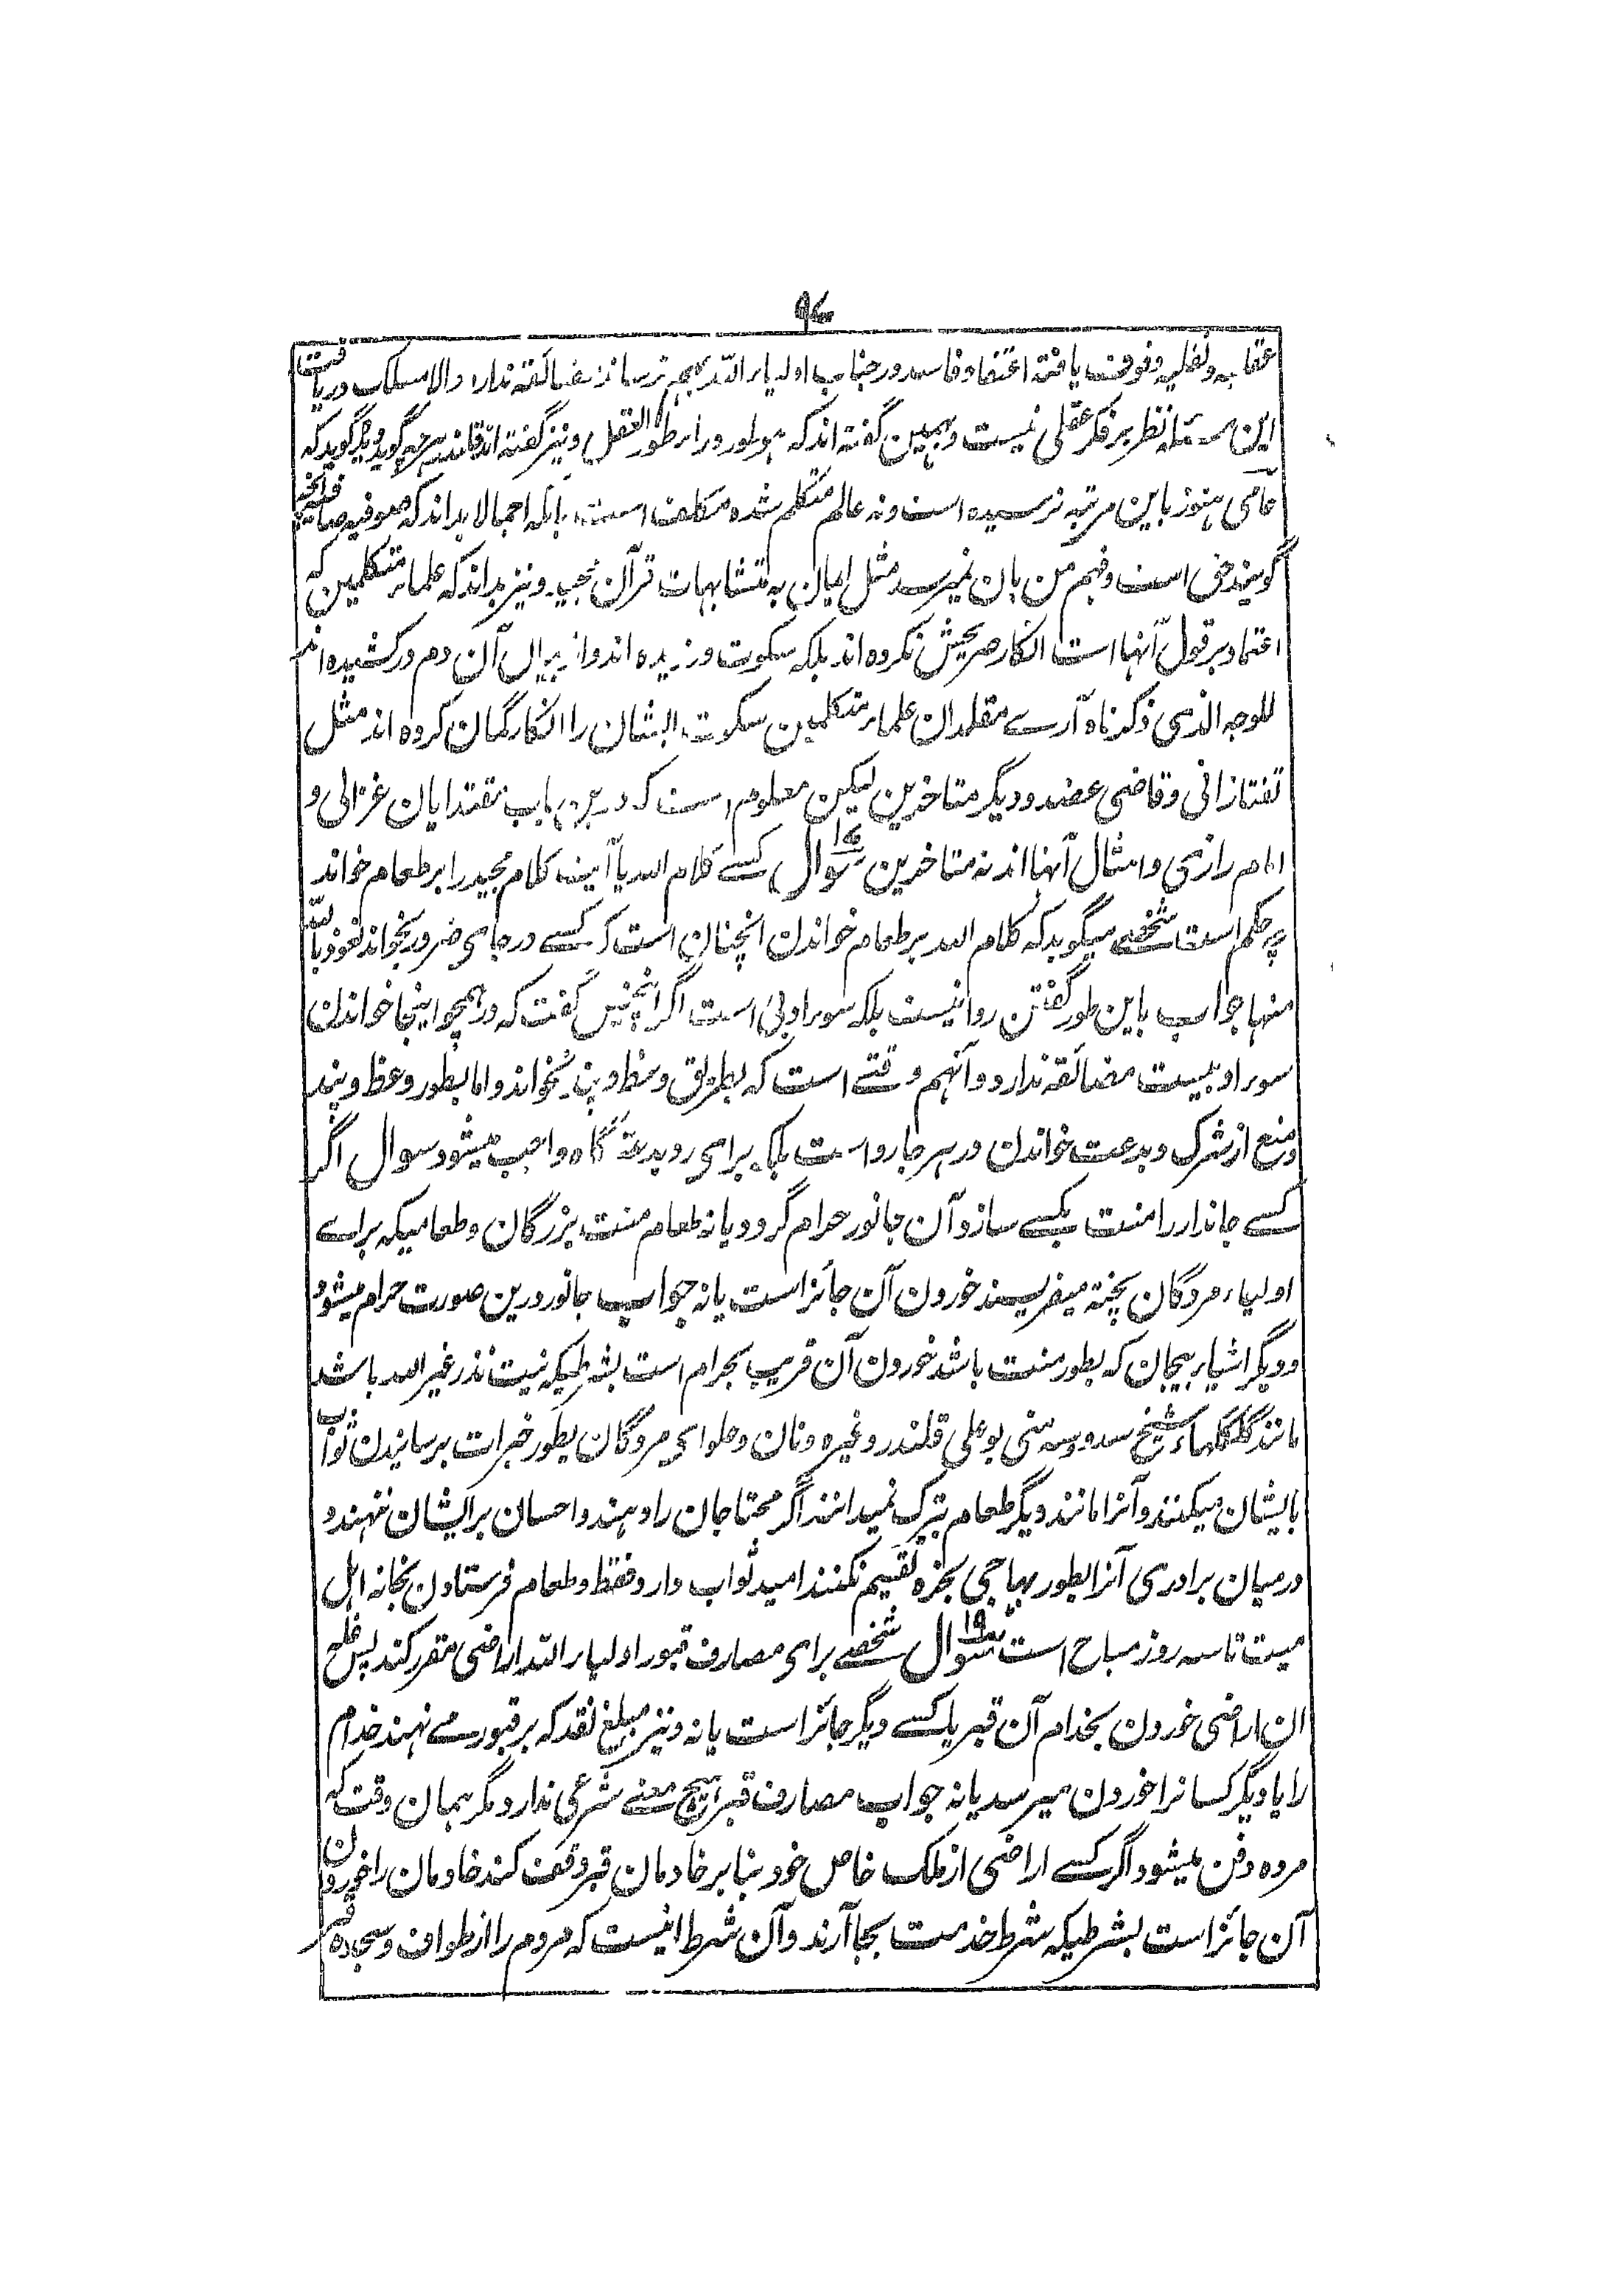 ۹۷
عقلیه و نقلیه وفوقت یافته اعتقاد فاسد در جناب اولیاء الله بهم نرساند مضائقه ندارد والا مسلک دریافت
این مسئله نظر بر فکر عقلی نیست و همین گفته اند که هو طور وراء طور العقل و نیز گفته اند قلندر هرچه گوید دیده گوید که
عاصی هنوز باین مرتبه نرسیده است و نه عالم متکلم شده مکلف است بآنکه اجمالا بداند که صوفیه صافیه آنچه
گویند حق است و فهم من بآن نمیرسد مثل ایمان به متشابهات قرآن مجید و نیز بداند که علماء متکلمین که
اعتماد بر قول آنها است انکار صریحش نکرده اند بلکه سکوت ورزیده اند و از بیان آن دم درکشیده اند
للوجه الذی ذکرناه آرے مقلدان علماء متکلمین سکوت ایشان را انکار گمان کرده اند مثل
تفتازانی و قاضی عضد و دیگر متاخرین لیکن معلوم است که درین باب مقتدایان غزالی و
امام رازی و امثال آنها اند نه متاخرین سوال کسے کلام الله یا آیت کلام مجید را بر طعام خواند
چه حکم است شخصے میگوید که کلام الله بر طعام خواندن آنچنان است که کسے در جای ضرور بخواند نعوذ بالله
منها جواب باین طور گفتن روا نیست بلکه سوء ادبی است اگر اینچنین گفت که در همچو اینجا خواندن
سوء ادبیست مضائقه ندارد و آنهم وقتے است که بطریق وعظ و پند نخواند و اما بطور وعظ و پند
و منع از شرک و بدعت خواندن در هر جا روا است بلکه برای رد بدعت گاه واجب میشود سوال اگر
کسے جاندار را منت بکسے سازد آن جانور حرام گردد یا نه طعام منت بزرگان و طعامیکه براے
اولیاء مردگان پخته میفریسند خوردن آن جائز است یا نه جواب جانور درین صورت حرام میشود
و دیگر اشیاء بیجان که بطور منت باشد خوردن آن قریب بحرام است بشرطیکه نیت نذر غیر الله باشد
مانند گلگلهاء شیخ سدو و سه منی بوعلی قلندر و غیره و نان و حلوای مردگان بطور خیرات برسانیدن ثواب
بایشان میکنند و آنرا مانند دیگر طعام تبرک نمیدانند اگر محتاجان را دهند و احسان بر ایشان ننهند و
درمیان برادری آنرا بطور بهاجی بخره تقسیم نکنند امید ثواب دارد فقط و طعام فرستادن بخانه اهل
میت تا سه روز مباح است سوال ۱۹ شخصے برای مصارف قبور اولیاء الله اراضی مقرر کند پس غله
ان اراضی خوردن بخدام آن قبر یا کسے دیگر جائز است یا نه و نیز مبلغ نقد که بر قبور مے نهند خدام
را یا دیگر کسانرا خوردن میرسد یا نه جواب مصارف قبر هیچ معنے شرعی ندارد مگر همان وقت که
مرده دفن میشود اگر کسے اراضی از ملک خاص خود بنا بر خادمان قبر وقف کند خادمان را خوردن
آن جائز است بشرطیکه شرط خدمت بجا آرند و آن شرط اینست که مردم را از طواف و سجده قبر